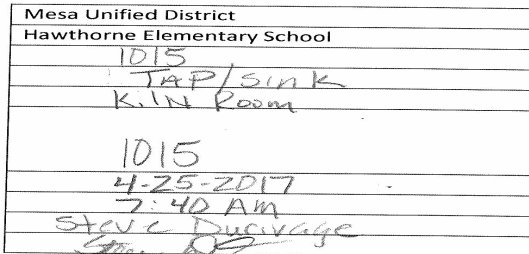 Mesa Unified District
Hawthorne Elementary School
1015
TAP/Sink
KilN Room
1015
4-25-2017
7:40 AM
Steve Ducivage